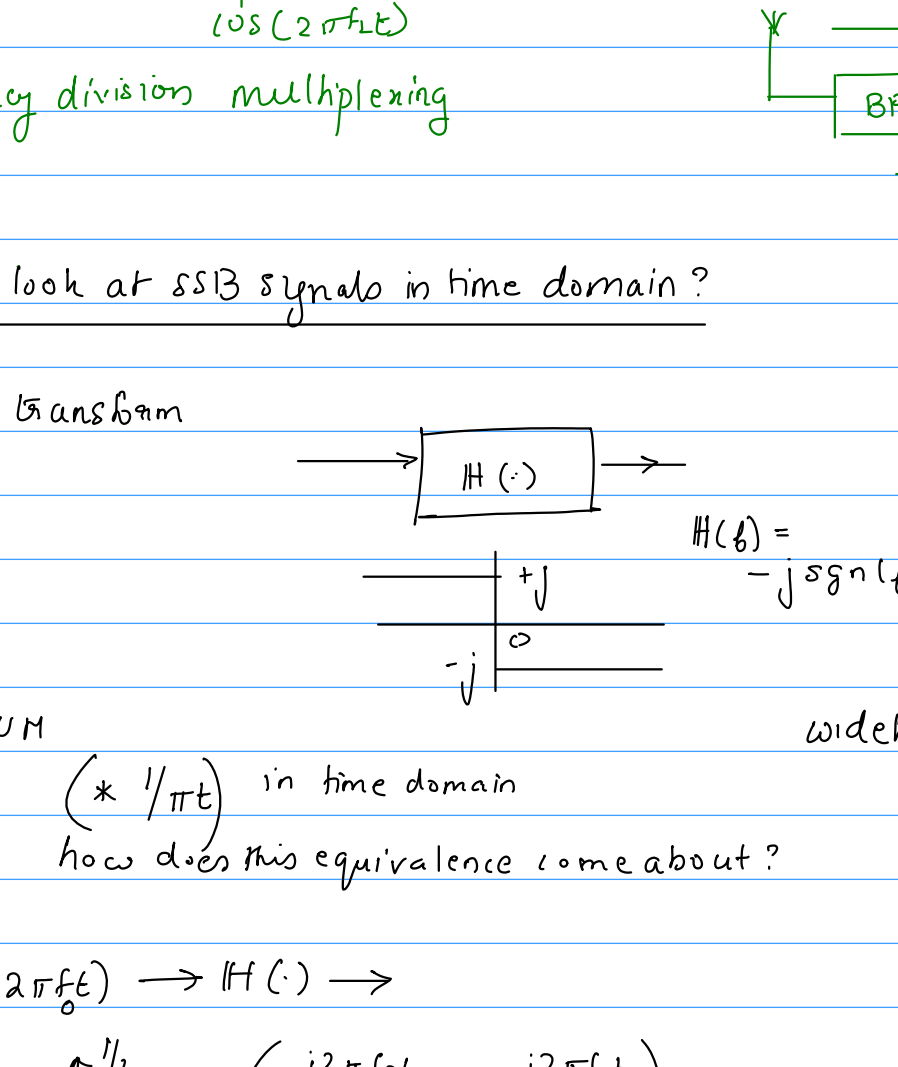 cos(2πf₂t)
cy division multiplexing
BP
look at SSB signals in time domain?
transform
H(·)
H(f) =
- j sgn(f
+j
0
-j
UM
(* 1/πt) in time domain
how does this equivalence come about?
2πf₀t) → H(·) →